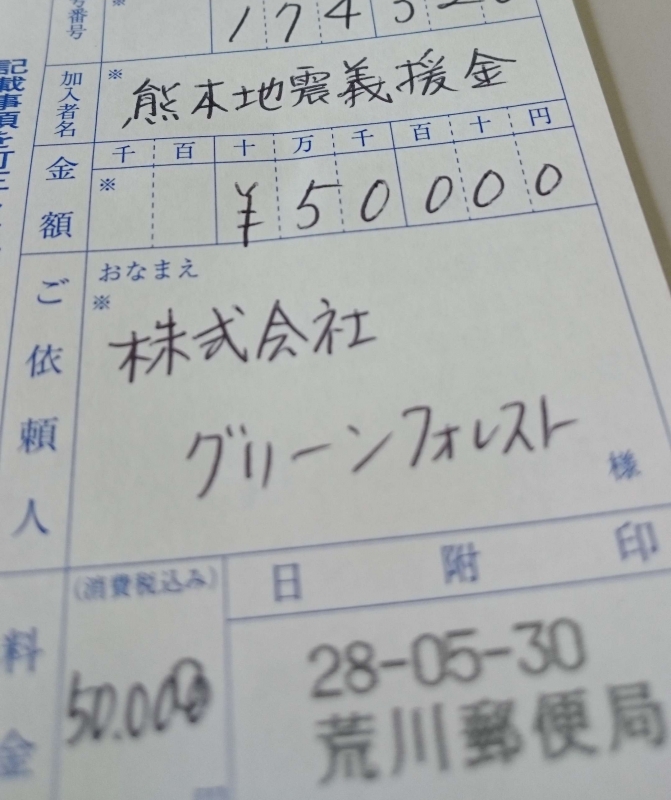 号番号
※
加入者名
※ 熊本地震義援金
金額
千 百 十 万 千 百 十 円
※
¥50000
ご依頼人
おなまえ
※
株式会社
グリーンフォレスト
様
料金
(消費税込み)
日附印
28-05-30
荒川郵便局